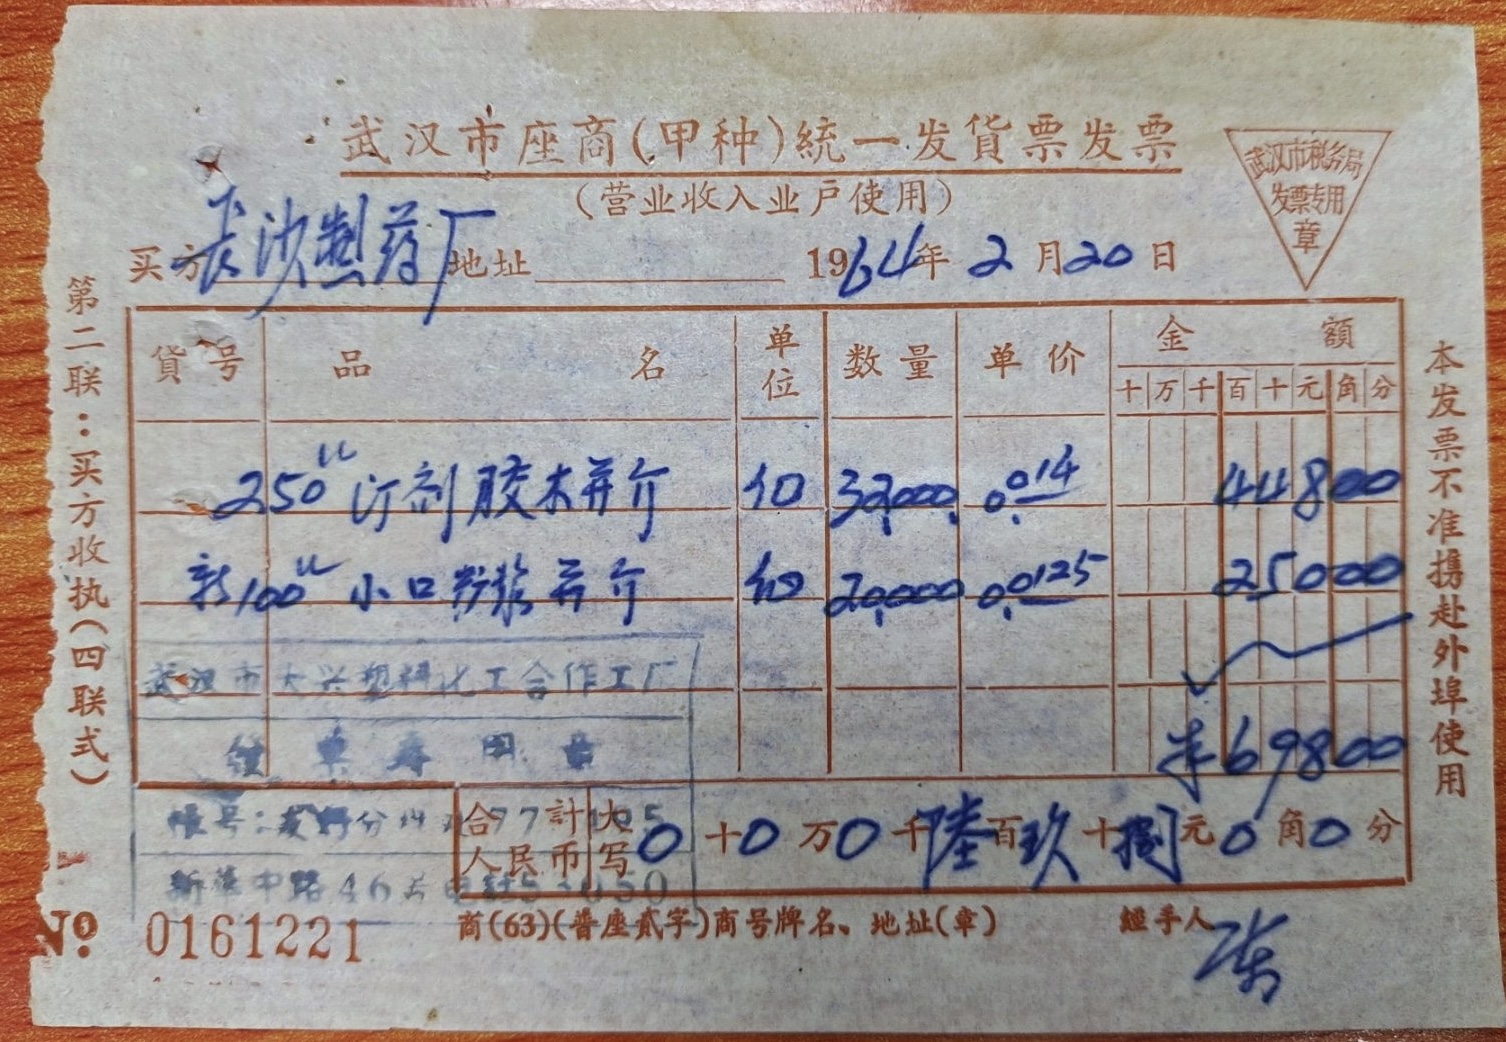 武汉市座商(甲种)統一发貨票发票
(营业收入业户使用)
武汉市税务局
发票专用
章
买方 长沙制药厂 地址 1964年 2月20日
第二联:买方收执(四联式)
本发票不准携赴外埠使用
貨号 品名 单位 数量 单价 金额
十 万 千 百 十 元 角 分
250 汀剂胶木并介 32,000 0.014 44800
100 小口 并介 20,000 0.0125 25000
武汉市大兴塑料化工合作工厂
¥69800
合計人民币 大写 0十0万0千陆百玖十捌元0角0分
№ 0161221
商(63)(普座貳字)商号牌名、地址(章) 經手人